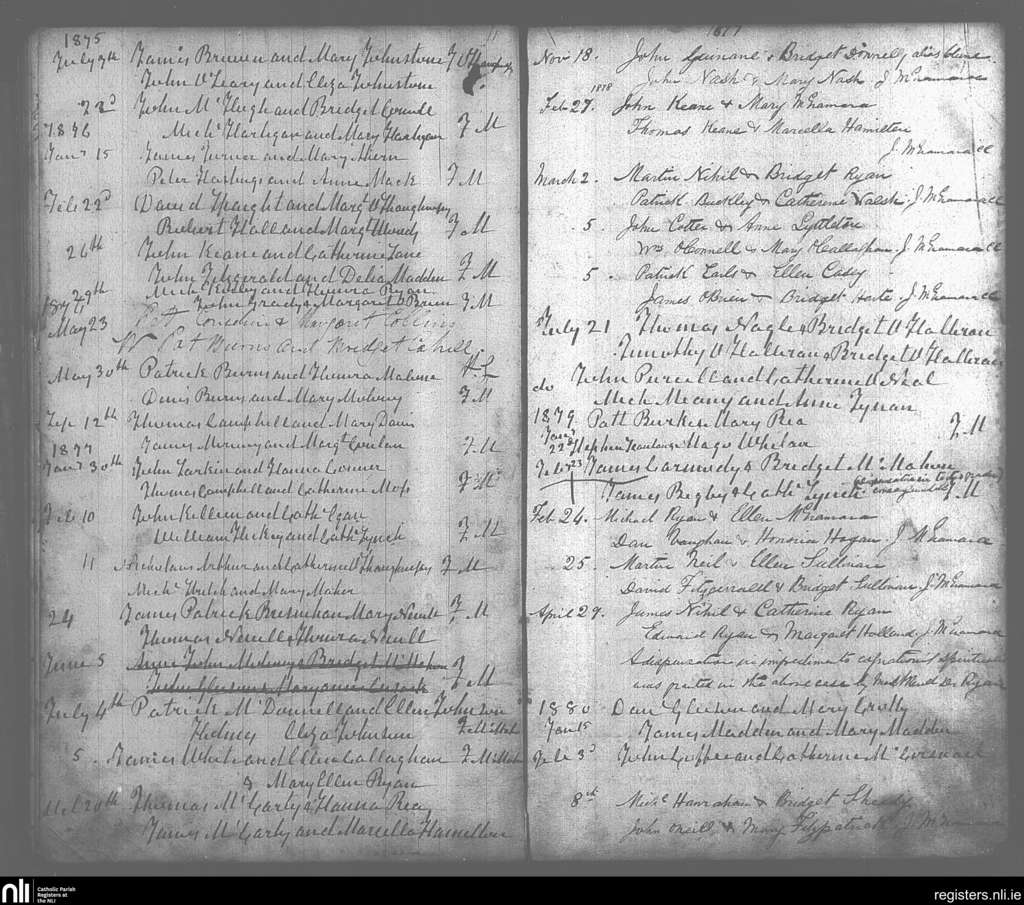 1875
July 9th James Brewen and Mary Johnstone J O'
John O'Leary and Eliza Johnstone
22d John McHugh and Bridget
Michl Hartigan and Mary Hartigan J M
1876
Jany 15 James Turner and Mary Ahern
Peter Hastings and Anne Mack J M
Feb 22d David Speaght and Margt O'Shaughnessy
Robert Hall and Margt J M
26th John Keane and Catherine Lane
John Fitzgerald and Delia Madden J M
29th Michl and Honora Ryan
John Grady & Margaret O'Brien J M
1876
May 23 Pat Considine & Margaret Collins
Pat Burns and Bridget
May 30th Patrick Burns and Honora Malone
Denis Burns and Mary Molony J M
Sep 12th Thomas Campbell and Mary Davis
James and Margt Conlan J M
1877
Jany 30th John Larkin and Hanna Connor
Thomas Campbell and Catherine Moss J Mc
Feb 10 John Killeen and Cathe Egan
William Hickey and Cathe Lynch J M
11 Nicholas Arthur and Catherine O'Shaughnessy J M
Michl and Mary Maher
24 James Patrick Bresnihan Mary Nevill J M
Thomas Nevill & Honora Nevill
June 5 John Molony & Bridget McMahon J M
John Gleeson & Maryanne Cusack
July 4th Patrick McDonnell and Ellen Johnson
Sidney Eliza Johnson J McMahon
5. James White and Ellen Callaghan J McMahon
& Mary Ellen Ryan
Oct 20th Thomas McCarty & Hanna Rea
James McCarty and Marcella Hamilton
1877
Nov 18. John & Bridget Donnelly alias
John Nash & Mary Nash J McNamara
1878
Feb 27. John Keane & Mary McNamara
Thomas Keane & Marcella Hamilton
J. McNamara CC
March 2. Martin Nihil & Bridget Ryan
Patrick Buckley & Catherine Walsh. J. McNamara CC
5. John Cotter & Anne Lyttleton
Wm O'Connell & Mary O'Callaghan J McNamara CC
5. Patrick Earls & Ellen Casey
James O'Brien & Bridget Harte J. McNamara CC
July 21 Thomas Nagle & Bridget O'Halloran
Timothy O'Halloran & Bridget O'Halloran
do John Purcell and Catherine O'Neal
Mich Meany and Anne Tynan
1879 Patt Burke & Mary Rea J. M
Jany 22d Stephen & Mago Whelan
Feb 23 James Carmody & Bridget McMahon
James Begley & Cathe Lynch (dispensation in consanguinity) J. M
Feb 24. Michael Ryan & Ellen McNamara
Dan Vaughan & Honoria Hogan. J McNamara
25. Martin Neil & Ellen Sullivan
David Fitzgerald & Bridget Sullivan J. McNamara
April 29. James Nihil & Catherine Ryan
Edward Ryan & Margaret Holland J. McNamara
A dispensation in impedimento cognationis spiritualis
was granted in the above case by Most Revd Dr. Ryan
1880 Dan Gleeson and Mary Crotty
Jan 15 James Madden and Mary Madden
Feb 3d John and Catherine
8th Michl Hanrahan & Bridget Sheedy
John O'Neill & Mary Fitzpatrick J. McNamara
nli
Catholic Parish
Registers at
the NLI
registers.nli.ie